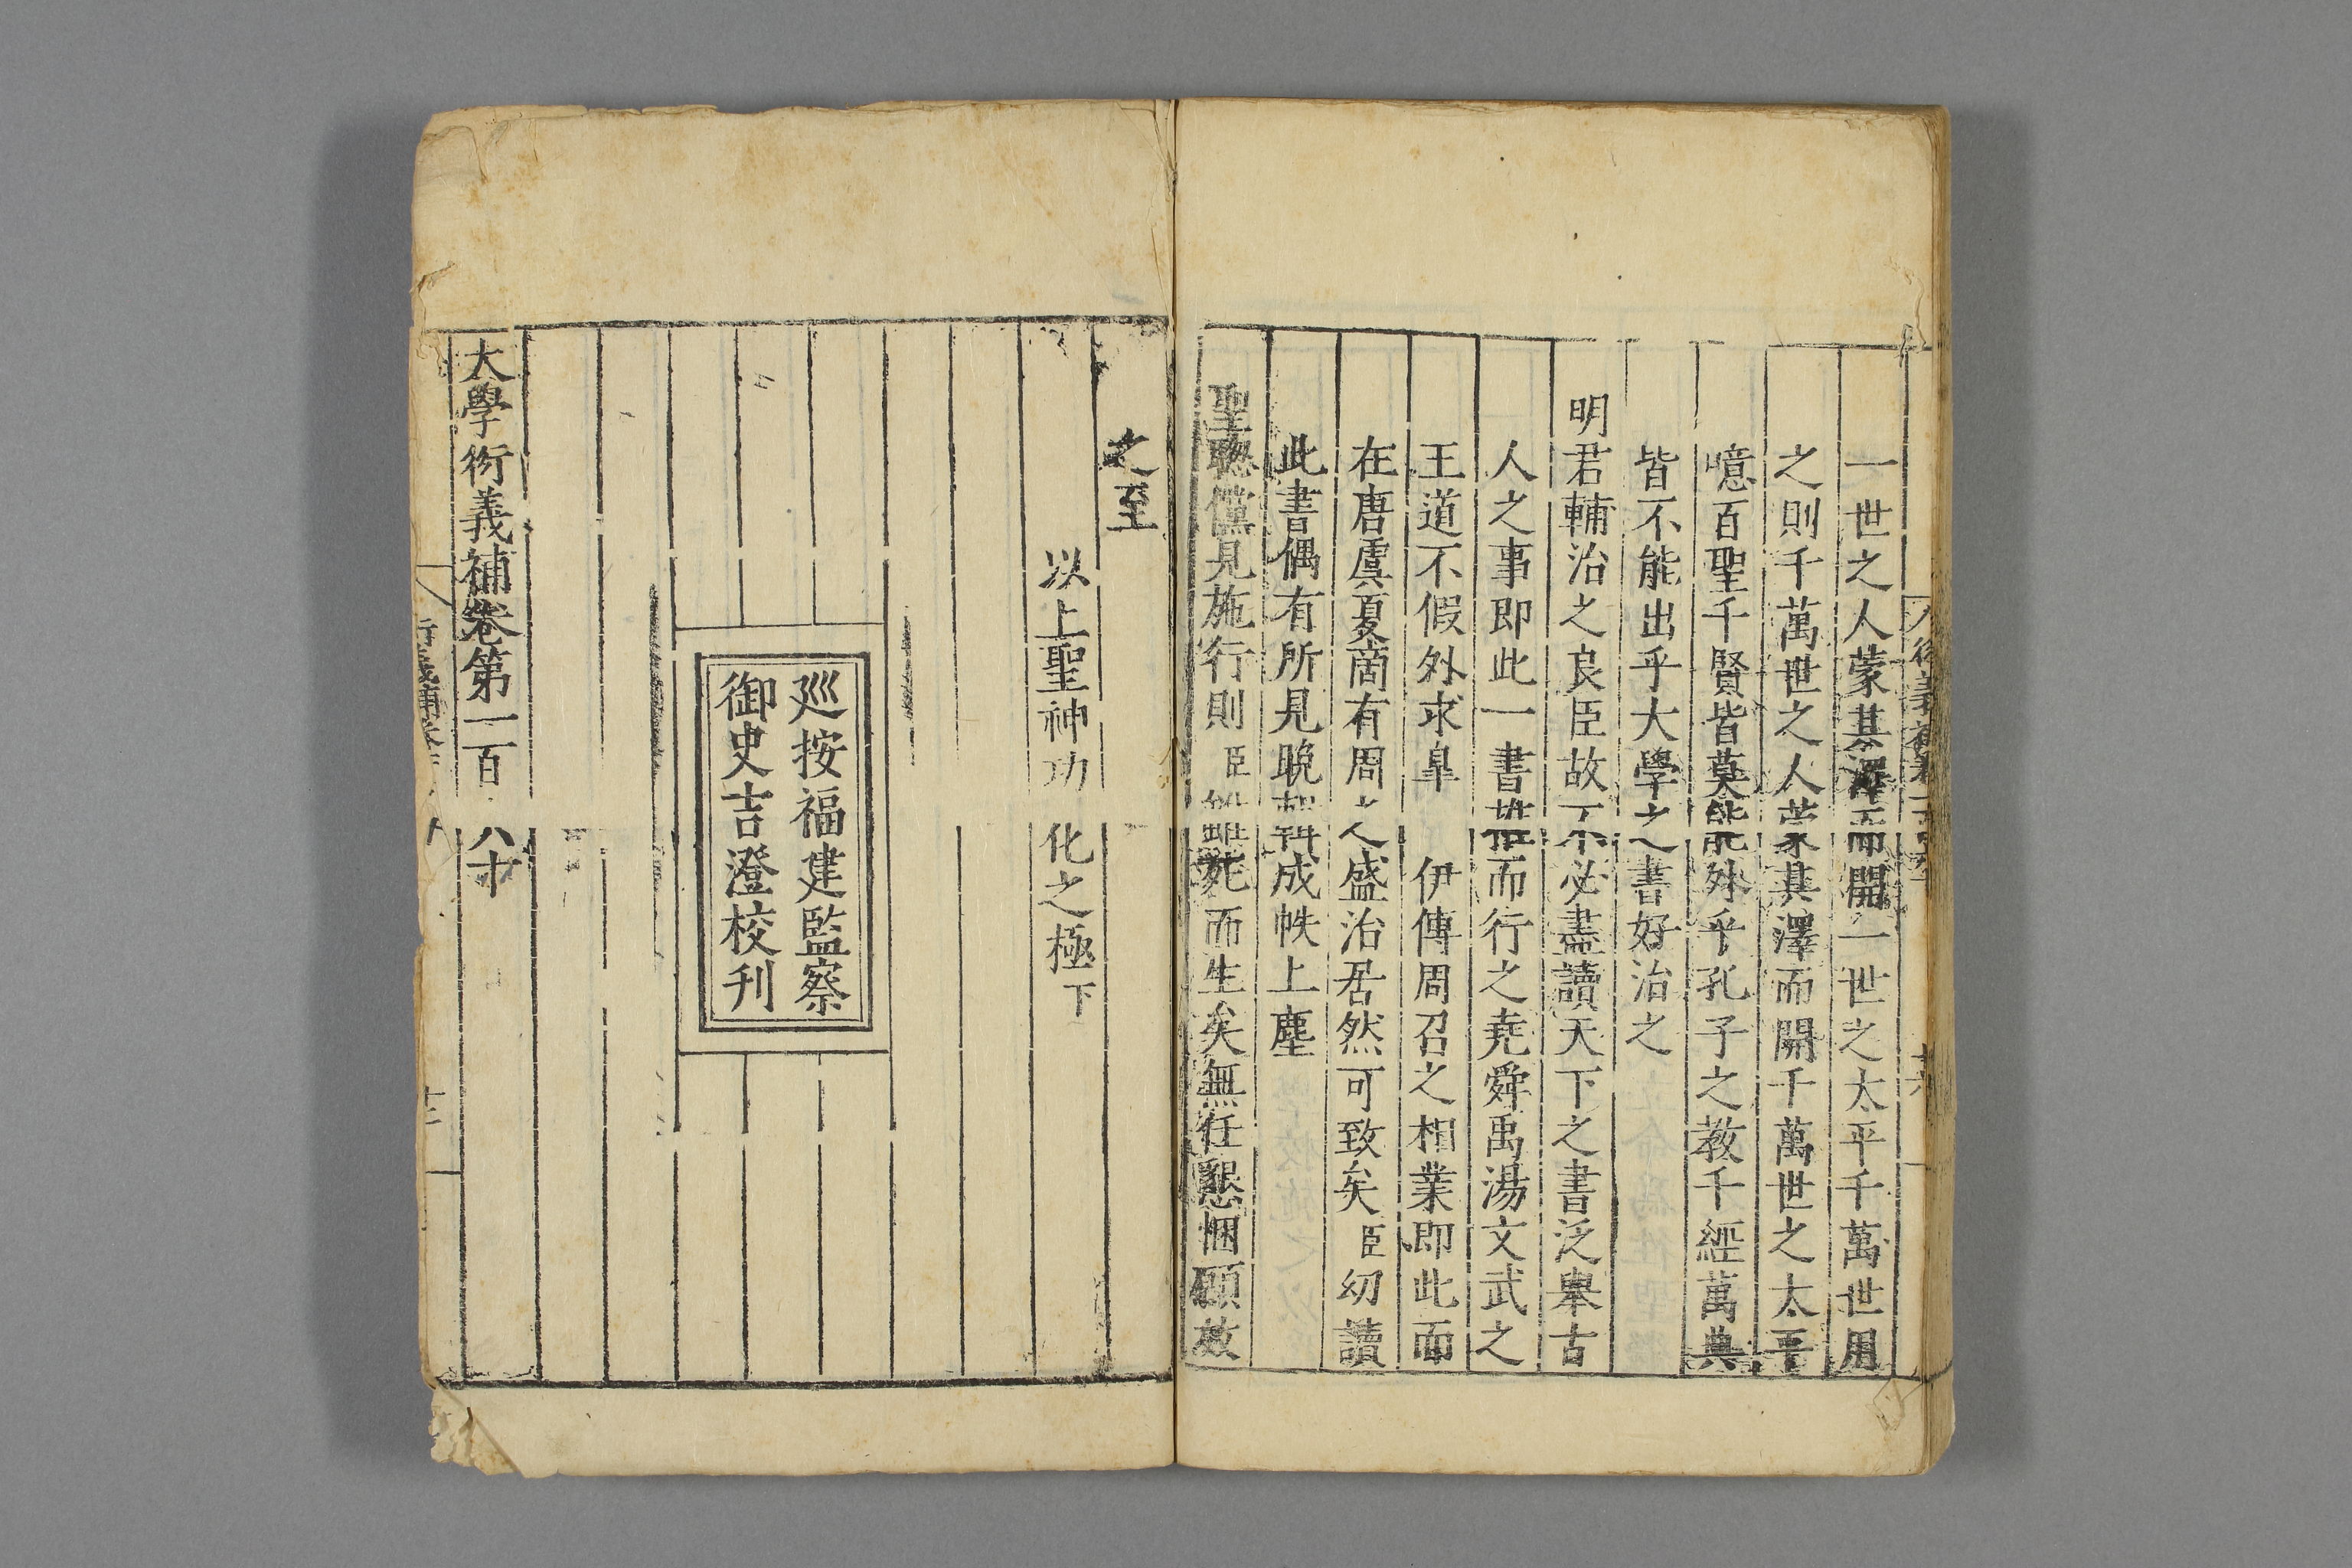 一世之人蒙其澤而開一世之太平千萬世用
之則千萬世之人蒙其澤而開千萬世之太平
噫百聖千賢皆莫能外乎孔子之教千經萬典
皆不能出乎大學之書好治之
明君輔治之良臣故不必盡讀天下之書泛舉古
人之事即此一書推而行之堯舜禹湯文武之
王道不假外求皐伊傅周召之相業即此而
在唐虞夏商有周之盛治居然可致矣臣幼讀
此書偶有所見晩輯成帙上塵
聖聰儻見施行則臣雖死而生矣無任懇悃願效
之至
以上聖神功化之極下
廵按福建監察
御史吉澄校刊
大學衍義補卷第一百六十